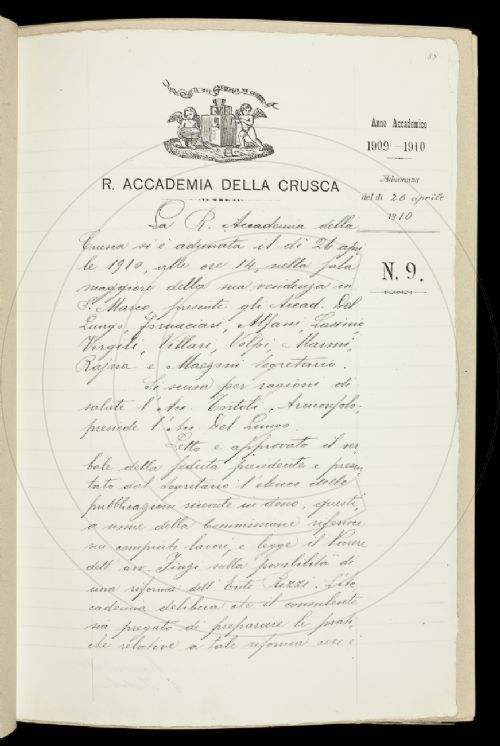 87
Anno Accademico
1909-1910
Adunanza
del dì 26 aprile
1910
N. 9.
R. ACCADEMIA DELLA CRUSCA
La R. Accademia della
Crusca si è adunata il dì 26 apri
le 1910, alle ore 14, nella sala
maggiore della sua residenza in
S. Marco, presenti gli Accad. Del
Lungo, Fornaciari, Alfani,
Virgili, Villari, Volpi, Marmi,
Rajna e Mazzoni Segretario.
Si scusa per ragioni di
salute l'Acc. Tortoli, Arciconsolo,
presiede l'Acc. Del Lungo.
Letto e approvato il ver
bale della seduta precedente e presen
tato dal Segretario l'elenco delle
pubblicazioni ricevute in dono, questi,
a nome della Commissione riferisce
sui compiuti lavori, e legge il Parere
dell'avv. sulla possibilità di
una riforma dell'Ente Rezzi. L'Ac
cademia delibera che il consulente
sia pregato di preparare le prati
che relative a tale riforma